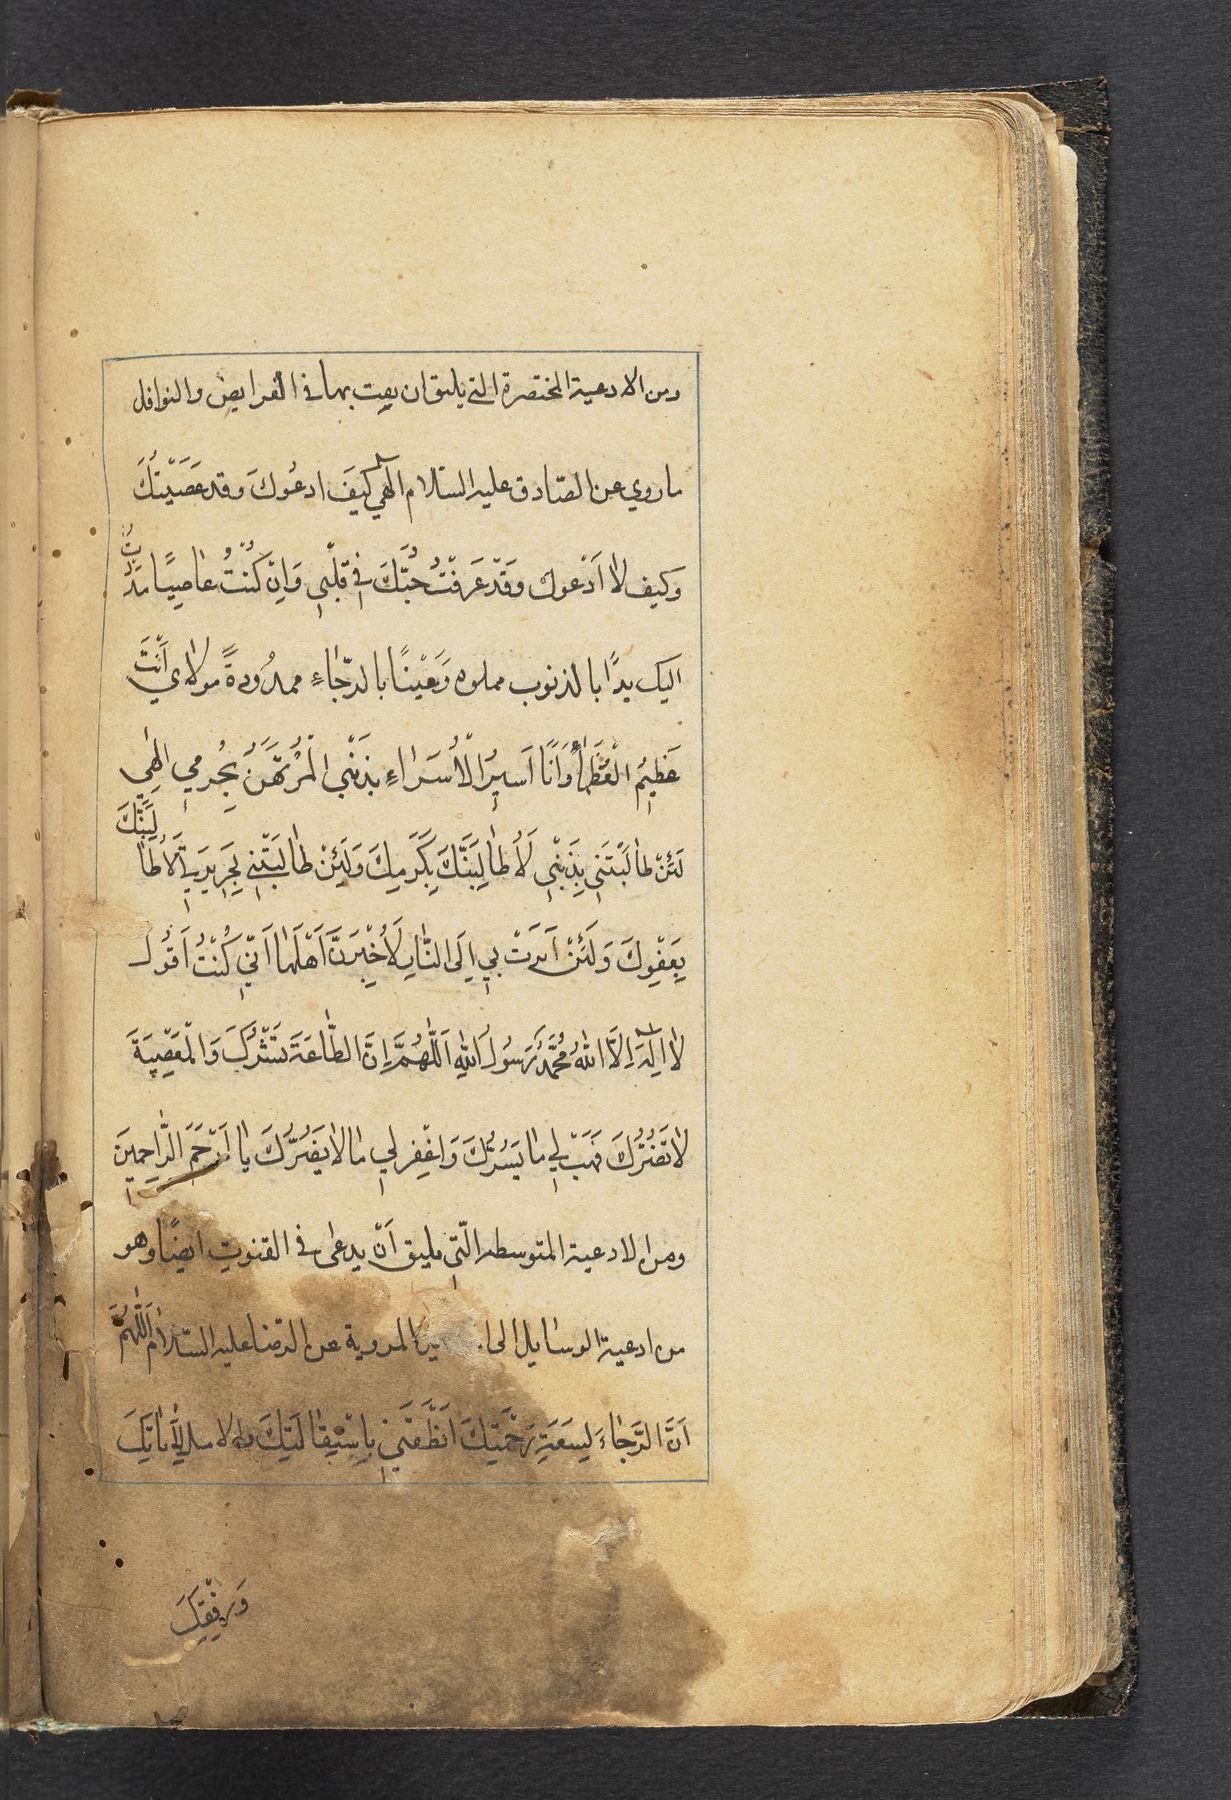 ومن الادعية المختصرة التي يليق ان يقنت بها في الفرايض والنوافل
ما روي عن الصّادق عليه السّلام الٰهي كَيفَ ادعُوكَ وقد عَصَيْتُكَ
وكيف لا اَدْعوك وَقَدْ عَرَفْتُ حُبَّكَ في قَلْبي وَاِنْ كُنْتُ عاصِيًا مَدَدْتُ
اليك يدًا بالذنوب مملوه وَعَيْنًا بالرّجاءِ ممدُودةً مولاي اَنْتَ
عَظيمُ الْعُظَمٰاءِ وَاَنَا اَسيرُ الْاُسَراءِ بِذَنْبي الْمُرْتَهَنُ بِجُرمي الٰهي
لَئِنْ طالَبْتَني بِذَنْبي لَاُطالِبَنَّكَ بِكَرَمِكَ وَلَئِنْ طالَبْتَني بِجَريرَتي لَاُطالِبَنَّكَ
بِعَفْوِكَ وَلَئِنْ اَمَرْتَ بي اِلَى النّارِ لَاُخْبِرَنَّ اَهْلَها اَنّي كُنْتُ اَقُولُ
لا اِلٰهَ اِلَّا اللهُ مُحَمَّدٌ رَسُولُ اللهِ اَللّٰهُمَّ اِنَّ الطّاعَةَ تَسُرُّكَ وَالْمَعْصِيَةَ
لا تَضُرُّكَ فَهَبْ لي ما يَسُرُّكَ وَاغْفِر لي ما لا يَضُرُّكَ يا اَرْحَمَ الرّاحِمينَ
ومن الادعية المتوسطه الّتي يليق اَنْ يدعى في القنوتِ ايضًا وهو
من ادعية الوسايل الى المروية عن الرضا عليه السّلام اَللّٰهُمَّ
اَنَّ الرَّجاءَ لِسَعَةِ رَحْمَتِكَ اَنْطَقَني بِاسْتِقالَتِكَ والامل لِاَناتِكَ
وَرِفْقِكَ